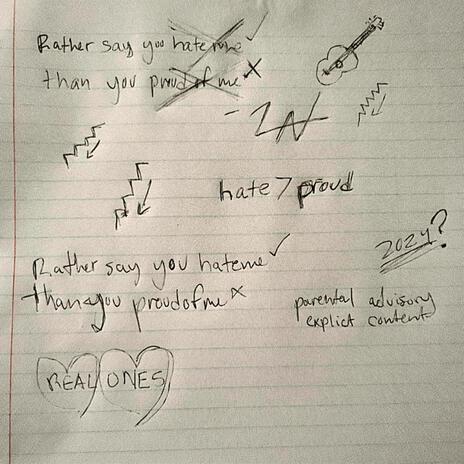 Rather say you hate me ✓
than you proud of me ×
hate > proud
Rather say you hateme ✓
than you proudofme ×
2024?
parental advisory
explict content
REAL ONES